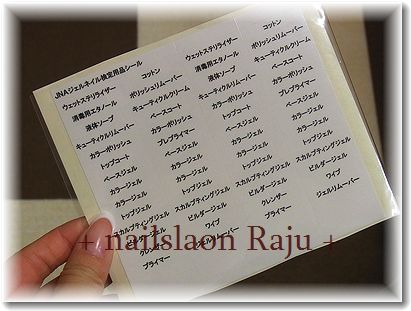 JNAジェルネイル検定用品シール コットン ウェットステリライザー コットン
ウェットステリライザー ポリッシュリムーバー 消毒用エタノール ポリッシュリムーバー
消毒用エタノール キューティクルクリーム 液体ソープ キューティクルクリーム
液体ソープ ベースコート キューティクルリムーバー ベースコート
キューティクルリムーバー カラーポリッシュ カラーポリッシュ カラーポリッシュ
カラーポリッシュ プレプライマー トップコート プレプライマー
トップコート ベースジェル ベースジェル ベースジェル
ベースジェル カラージェル カラージェル カラージェル
カラージェル カラージェル カラージェル カラージェル
カラージェル トップジェル トップジェル トップジェル
トップジェル スカルプティングジェル スカルプティングジェル スカルプティングジェル
スカルプティングジェル ビルダージェル ビルダージェル ビルダージェル
ビルダージェル ワイプ クレンザー ワイプ
クレンザー ジェルリムーバー プライマー ジェルリムーバー
プライマー
+ nailslaon Raju +